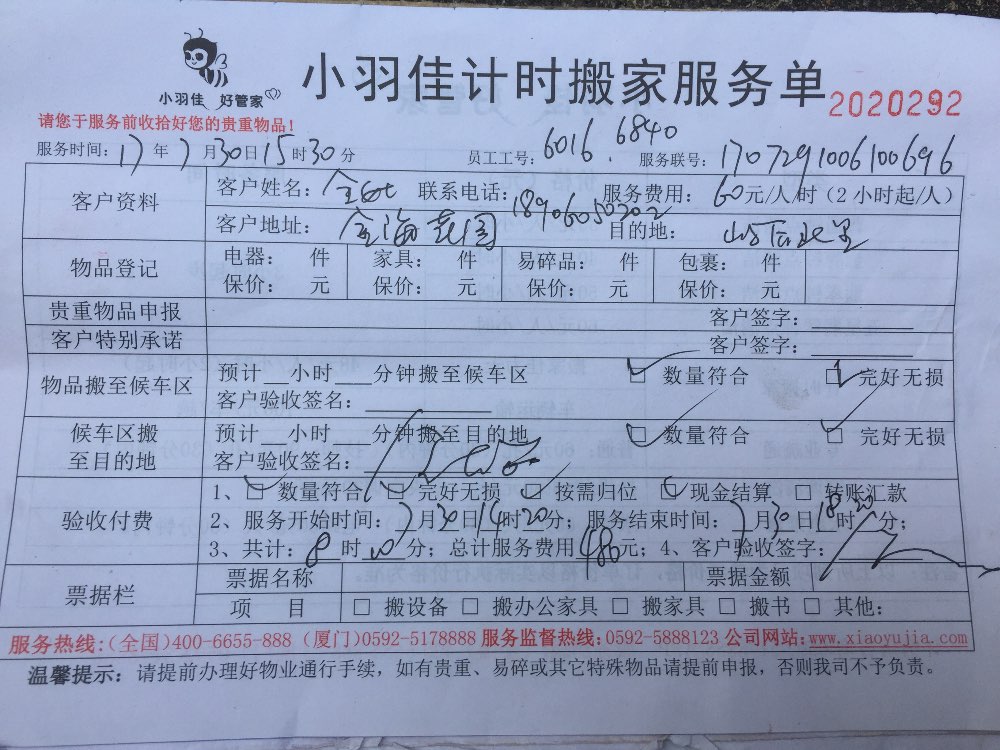 小羽佳 好管家
小羽佳计时搬家服务单
2020292
请您于服务前收拾好您的贵重物品!
服务时间: 17年7月30日15时30分 员工工号: 6016.6840 服务联号: 1707291006100696
客户资料 客户姓名: 联系电话: 18906050202 服务费用: 60元/人/时(2小时起/人)
客户地址: 金海花园 目的地:
物品登记 电器: 件 家具: 件 易碎品: 件 包裹: 件
保价: 元 保价: 元 保价: 元 保价: 元
贵重物品申报 客户签字:
客户特别承诺 客户签字:
物品搬至候车区 预计__小时___分钟搬至候车区 ☑ 数量符合 ☑ 完好无损
客户验收签名:
候车区搬至目的地 预计___小时___分钟搬至目的地 ☑ 数量符合 ☑ 完好无损
客户验收签名:
验收付费 1、☑ 数量符合 ☑ 完好无损 ☑ 按需归位 ☑ 现金结算 □ 转账汇款
2、服务开始时间: 7月30日14时20分; 服务结束时间: 7月30日18时20分;
3、共计: 8时0分; 总计服务费用480元; 4、客户验收签字:
票据栏 票据名称 票据金额
项 目 □ 搬设备 □ 搬办公家具 □ 搬家具 □ 搬书 □ 其他:
服务热线:(全国)400-6655-888 (厦门)0592-5178888 服务监督热线:0592-5888123 公司网站:www.xiaoyujia.com
温馨提示: 请提前办理好物业通行手续，如有贵重、易碎或其它特殊物品请提前申报，否则我司不予负责。